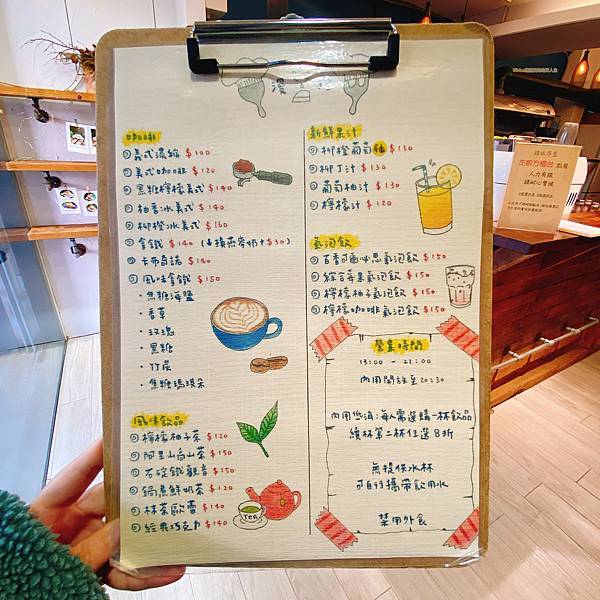 漫
咖啡
義式濃縮 $100
義式咖啡 $120
黑糖檸檬美式 $140
柚香冰美式 $140
柳橙冰美式 $160
拿鐵 $140 (+換燕麥奶+$30)
卡布奇諾 $140
風味拿鐵 $150
・焦糖海鹽
・香草
・玫瑰
・黑糖
・竹炭
・焦糖瑪琪朵
風味飲品
檸檬柚子茶 $120
阿里山高山茶 $150
石碇鐵觀音 $150
鍋煮鮮奶茶 $120
抹茶歐蕾 $140
經典巧克力 $140
TEA
新鮮果汁
柳橙葡萄柚 $130
柳丁汁 $130
葡萄柚汁 $130
檸檬汁 $120
氣泡飲
百香 氣泡飲 $150
綜合莓果氣泡飲 $150
檸檬柚子氣泡飲 $150
檸檬咖啡氣泡飲 $150
營業時間
13:00 - 21:00
內用開放至20:30
內用低消:每人需選購一杯飲品
續杯第二杯任選8折
無提供水杯
可自行攜帶飲用水
禁用外食
請依序至
左前方櫃台 點餐
人力有限
請耐心等候